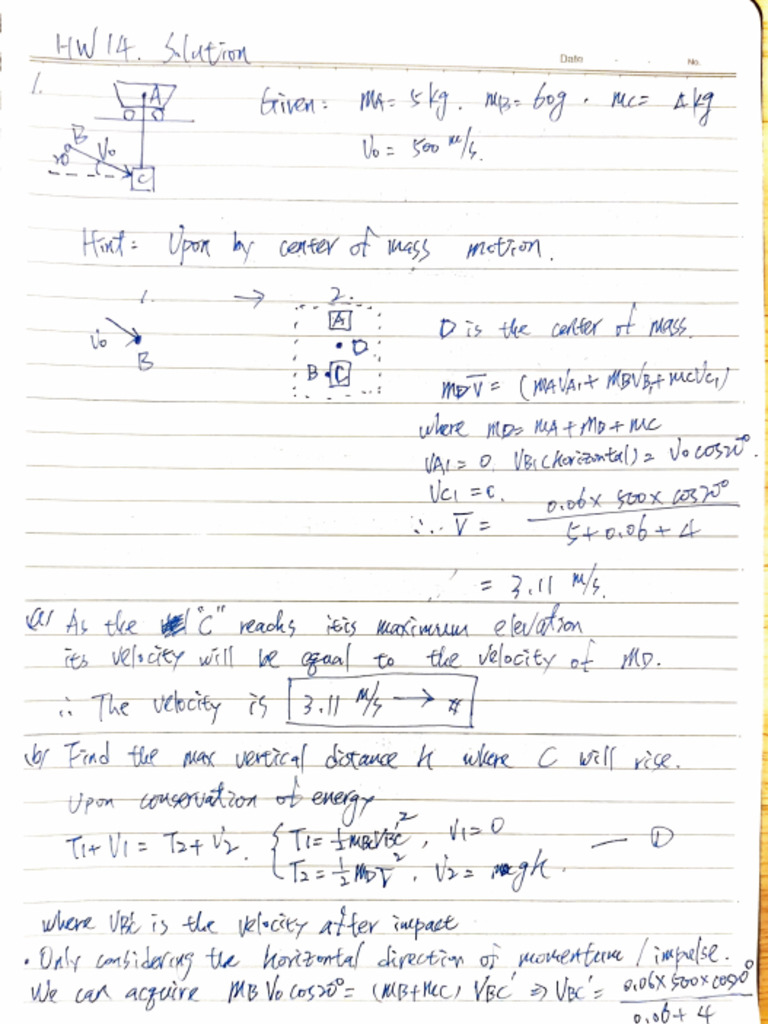 HW 14. Solution
Date No.
1.
A
B
20°
V0
C
Given: mA = 5 kg. mB = 60g. mC = 4 kg
V0 = 500 m/s.
Hint: Upon by center of mass motion.
1. → 2.
V0
B
A
D
B C
D is the center of mass.
mD V̅ = (mAVA1 + mBVB1 + mCVC1)
where mD = mA + mB + mC
VA1 = 0. VB1 (horizontal) = V0 cos20°.
VC1 = 0.
∴ V̅ = 0.06 × 500 × cos20° / 5 + 0.06 + 4
= 3.11 m/s.
(a) As the "C" reachs itis maximum elevation
its velocity will be equal to the velocity of mD.
∴ The velocity is 3.11 m/s → #
(b) Find the max vertical distance h where C will rise.
Upon conservation of energy
T1 + V1 = T2 + V2. { T1 = ½ mBC VBC'², V1 = 0 — ①
T2 = ½ mD V̅². V2 = mgh.
where VBC' is the velocity after impact
· Only considering the horizontal direction of momentum / impulse.
We can acquire mB V0 cos20° = (mB + mC) VBC' ⇒ VBC' = 0.06 × 500 × cos20° / 0.06 + 4